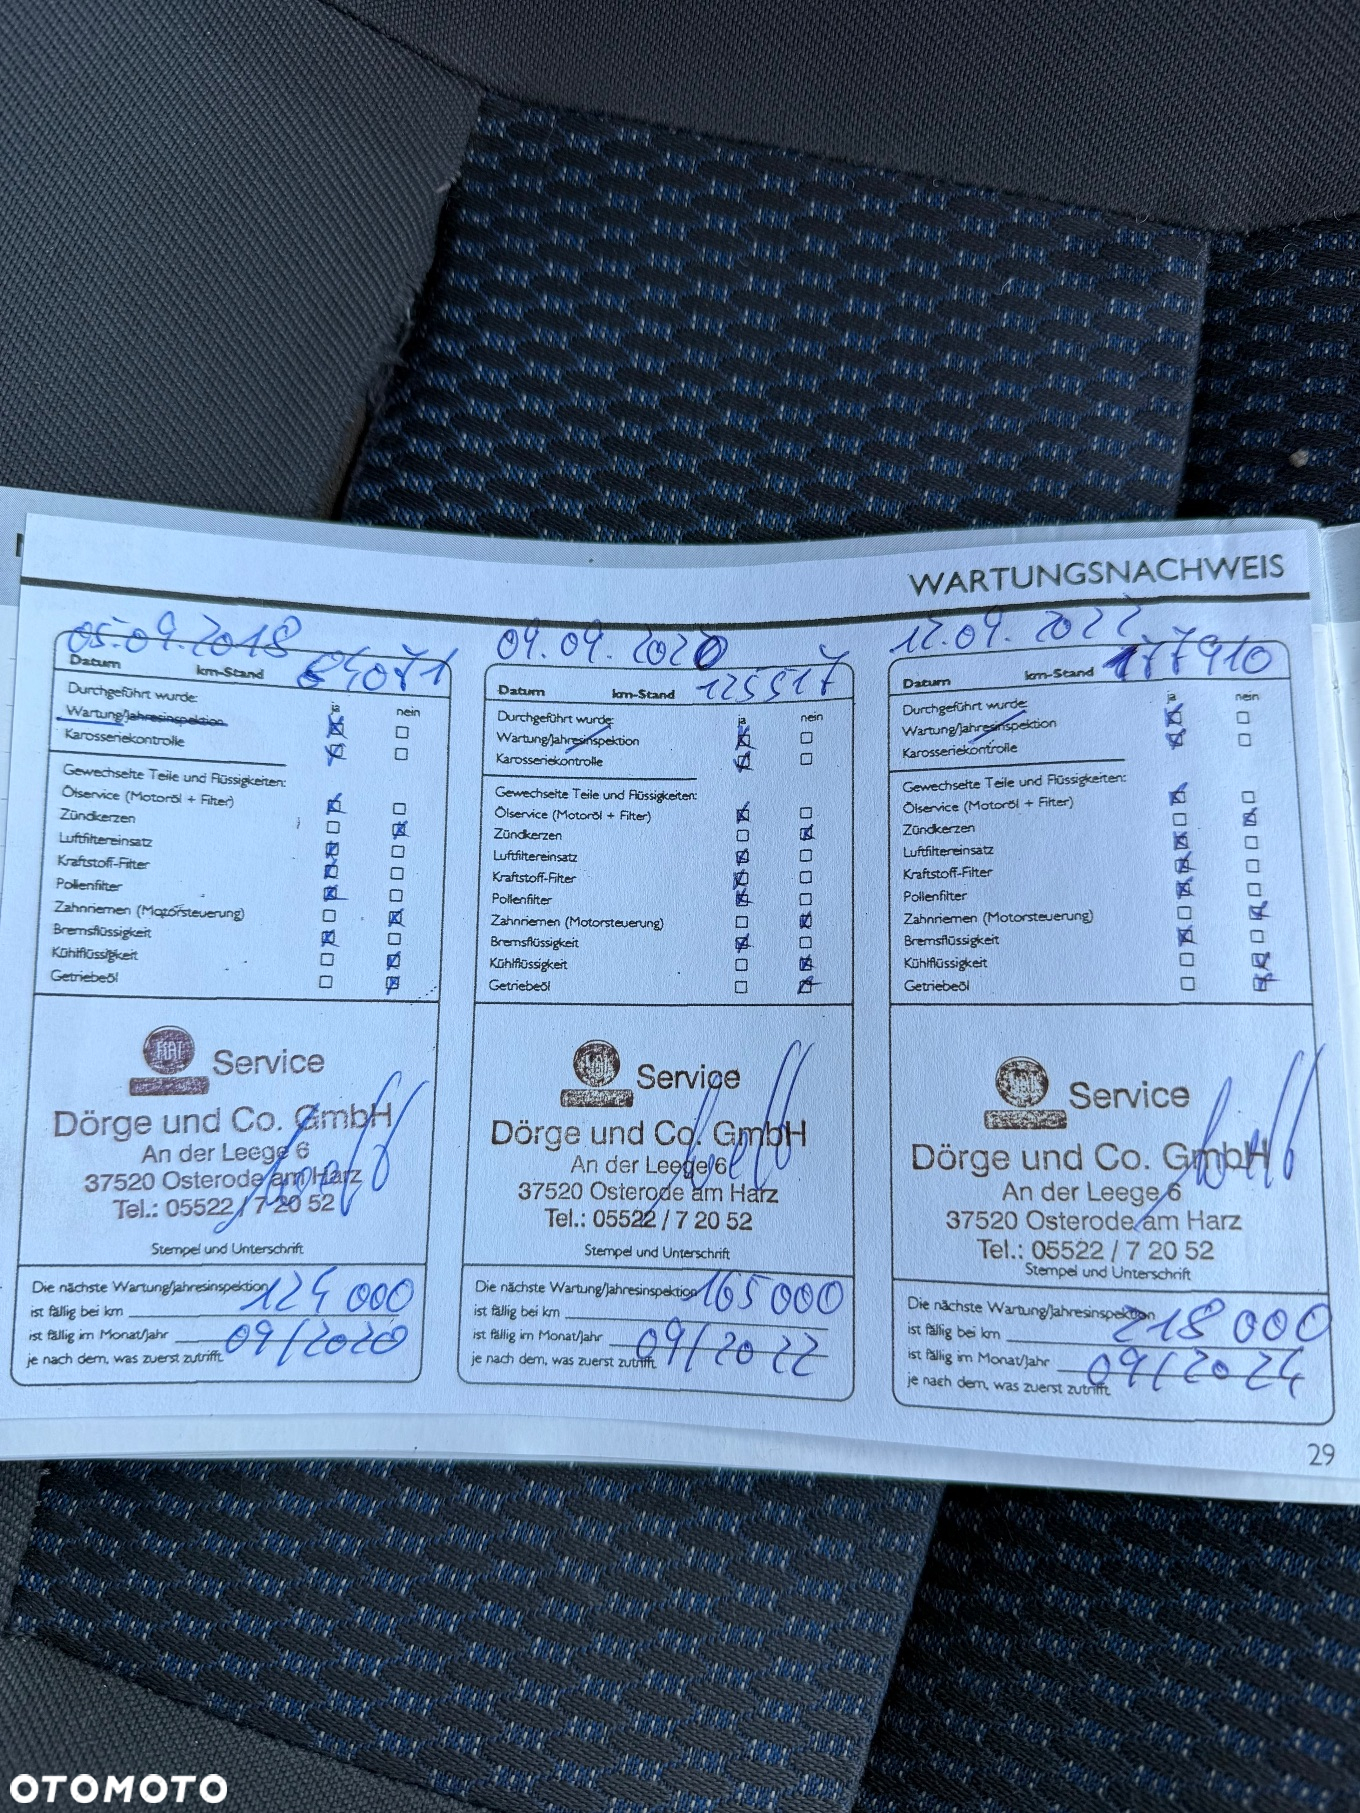 WARTUNGSNACHWEIS
05.09.2018
Datum km-Stand 84071
Durchgeführt wurde: ja nein
Wartung/Jahresinspektion
Karosseriekontrolle
Gewechselte Teile und Flüssigkeiten:
Ölservice (Motoröl + Filter)
Zündkerzen
Luftfiltereinsatz
Kraftstoff-Filter
Pollenfilter
Zahnriemen (Motorsteuerung)
Bremsflüssigkeit
Kühlflüssigkeit
Getriebeöl
FIAT Service
Dörge und Co. GmbH
An der Leege 6
37520 Osterode am Harz
Tel.: 05522 / 7 20 52
Stempel und Unterschrift
Die nächste Wartung/Jahresinspektion
ist fällig bei km 124 000
ist fällig im Monat/Jahr 09/2020
je nach dem, was zuerst zutrifft.
04.09.2020
Datum km-Stand 125517
Durchgeführt wurde: ja nein
Wartung/Jahresinspektion
Karosseriekontrolle
Gewechselte Teile und Flüssigkeiten:
Ölservice (Motoröl + Filter)
Zündkerzen
Luftfiltereinsatz
Kraftstoff-Filter
Pollenfilter
Zahnriemen (Motorsteuerung)
Bremsflüssigkeit
Kühlflüssigkeit
Getriebeöl
FIAT Service
Dörge und Co. GmbH
An der Leege 6
37520 Osterode am Harz
Tel.: 05522 / 7 20 52
Stempel und Unterschrift
Die nächste Wartung/Jahresinspektion
ist fällig bei km 165 000
ist fällig im Monat/Jahr 09/2022
je nach dem, was zuerst zutrifft.
12.09.2022
Datum km-Stand 177910
Durchgeführt wurde: ja nein
Wartung/Jahresinspektion
Karosseriekontrolle
Gewechselte Teile und Flüssigkeiten:
Ölservice (Motoröl + Filter)
Zündkerzen
Luftfiltereinsatz
Kraftstoff-Filter
Pollenfilter
Zahnriemen (Motorsteuerung)
Bremsflüssigkeit
Kühlflüssigkeit
Getriebeöl
FIAT Service
Dörge und Co. GmbH
An der Leege 6
37520 Osterode am Harz
Tel.: 05522 / 7 20 52
Stempel und Unterschrift
Die nächste Wartung/Jahresinspektion
ist fällig bei km 218 000
ist fällig im Monat/Jahr 09/2024
je nach dem, was zuerst zutrifft.
29
OTOMOTO